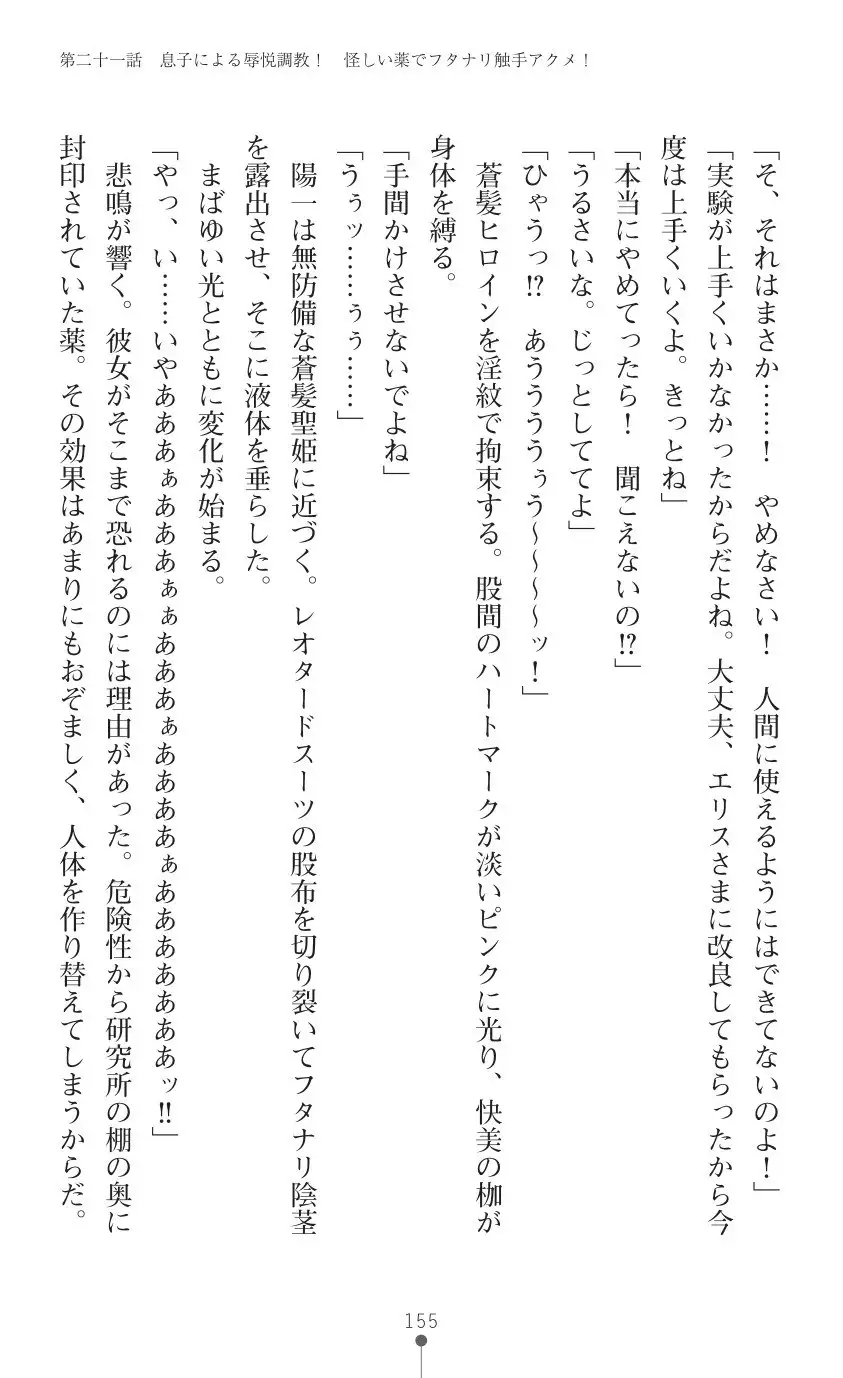 第二十一話　息子による辱悦調教！　怪しい薬でフタナリ触手アクメ！
「そ、それはまさか……！　やめなさい！　人間に使えるようにはできてないのよ！」
「実験が上手くいかなかったからだよね。大丈夫、エリスさまに改良してもらったから今
度は上手くいくよ。きっとね」
「本当にやめてったら！　聞こえないの!?」
「うるさいな。じっとしててよ」
「ひゃうっ!?　あうううぅう～～～～ッ！」
　蒼髪ヒロインを淫紋で拘束する。股間のハートマークが淡いピンクに光り、快美の枷が
身体を縛る。
「手間かけさせないでよね」
「うぅッ……ぅぅ……」
　陽一は無防備な蒼髪聖姫に近づく。レオタードスーツの股布を切り裂いてフタナリ陰茎
を露出させ、そこに液体を垂らした。
　まばゆい光とともに変化が始まる。
「やっ、い……いやあああぁあああぁぁあああぁああああぁああああああああッ!!」
　悲鳴が響く。彼女がそこまで恐れるのには理由があった。危険性から研究所の棚の奥に
封印されていた薬。その効果はあまりにもおぞましく、人体を作り替えてしまうからだ。
155